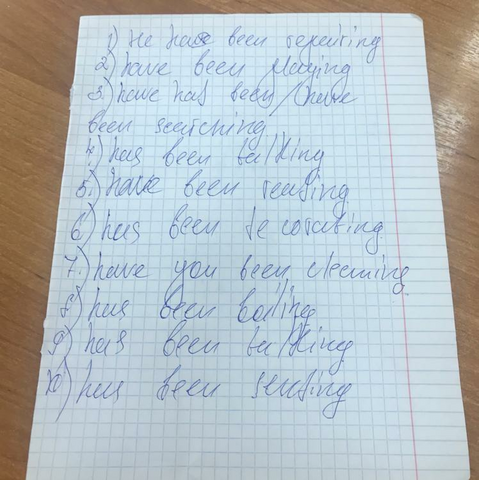 1) He have been repeating
2.) have been playing
3.) have has been / have
been searching
4.) has been talking
5.) have been reading
6.) has been decorating
7.) have you been cleaning.
8) has been boiling
9) has been talking
10) has been sending